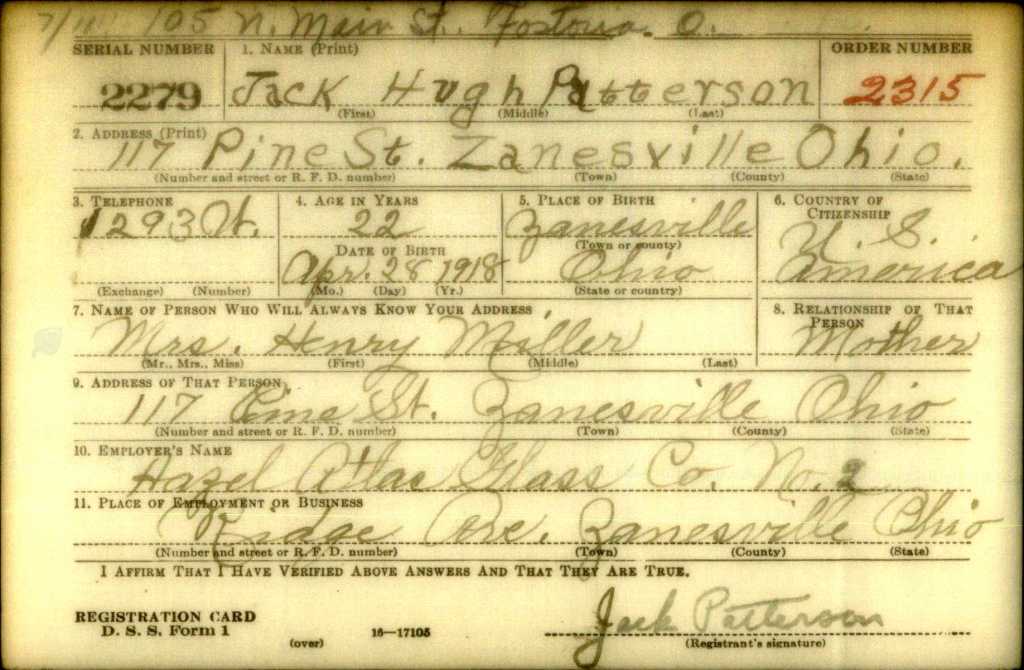 105 N. Main St. Fostoria. O.
SERIAL NUMBER 1. NAME (Print) ORDER NUMBER
2279 Jack Hugh Patterson 2315
(First) (Middle) (Last)
2. ADDRESS (Print)
117 Pine St. Zanesville Ohio.
(Number and street or R. F. D. number) (Town) (County) (State)
3. TELEPHONE 4. AGE IN YEARS 5. PLACE OF BIRTH 6. COUNTRY OF CITIZENSHIP
1293 W. 22 Zanesville U. S.
DATE OF BIRTH (Town or county)
Apr. 28 1918 Ohio America
(Exchange) (Number) (Mo.) (Day) (Yr.) (State or country)
7. NAME OF PERSON WHO WILL ALWAYS KNOW YOUR ADDRESS 8. RELATIONSHIP OF THAT PERSON
Mrs. Henry Miller Mother
(Mr., Mrs., Miss) (First) (Middle) (Last)
9. ADDRESS OF THAT PERSON
117 Pine St. Zanesville Ohio
(Number and street or R. F. D. number) (Town) (County) (State)
10. EMPLOYER'S NAME
Hazel Atlas Glass Co. No. 2
11. PLACE OF EMPLOYMENT OR BUSINESS
Ridge Ave. Zanesville Ohio
(Number and street or R. F. D. number) (Town) (County) (State)
I AFFIRM THAT I HAVE VERIFIED ABOVE ANSWERS AND THAT THEY ARE TRUE.
REGISTRATION CARD Jack Patterson
D. S. S. Form 1 (over) 16—17105 (Registrant's signature)